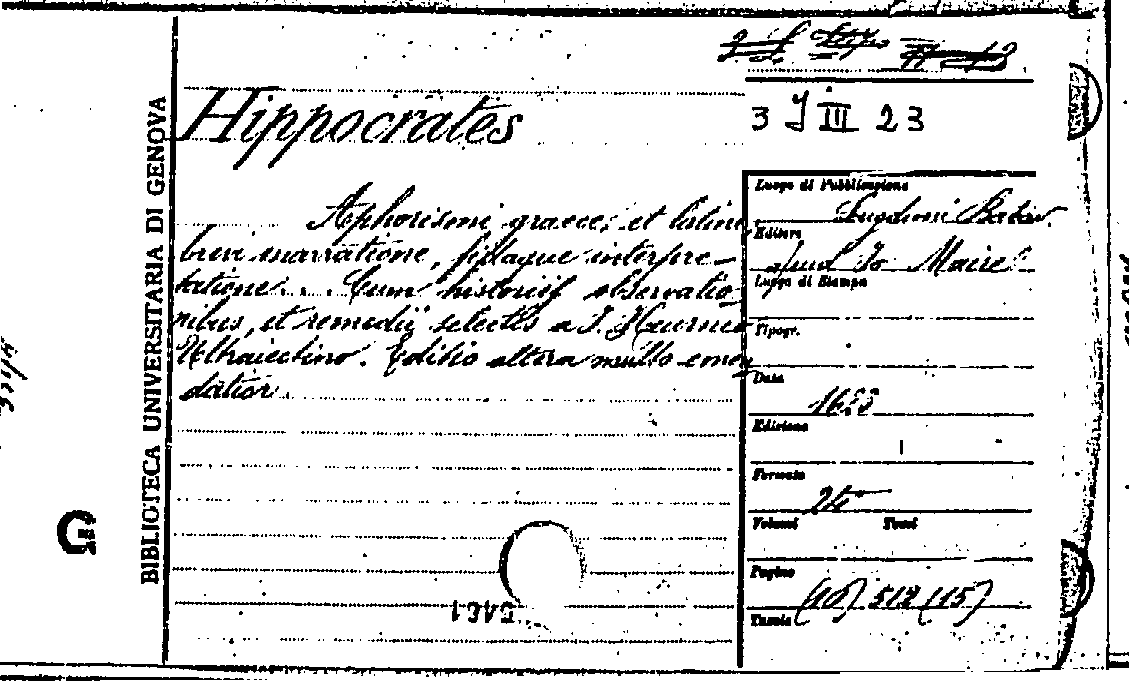 3 J III 23
BIBLIOTECA UNIVERSITARIA DI GENOVA
Hippocrates
Aphorismi graece, et latine,
brevi enarratione, fidaque interpre-
tatione. Cum historiis observatio
nibus, et remedii selectis a J. Heurnio
Ultraiectino. Editio altera multo emen
datior.
Luogo di Pubblicazione
Lugduni Batav
Editore
apud Jo Maire
Luogo di Stampa
Tipogr.
Data
Edizione
Formato
24°
Volumi Tomi
Pagine
(16) 512 (15)
Tavole
G